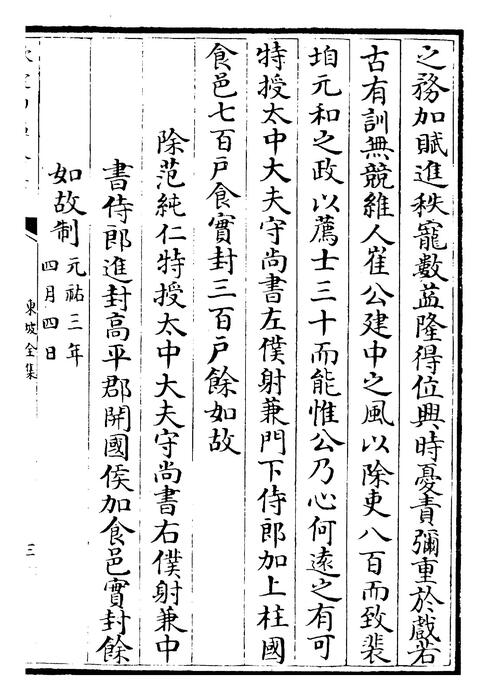 之務加賦進秩寵數益隆得位興時憂責彌重於戲若
古有訓無競維人崔公建中之風以除吏八百而致裴
垍元和之政以薦士三十而能惟公乃心何遠之有可
特授太中大夫守尚書左僕射兼門下侍郎加上柱國
食邑七百戸食實封三百戸餘如故
除范純仁特授太中大夫守尚書右僕射兼中
書侍郎進封高平郡開國侯加食邑實封餘
如故制元祐三年
四月四日
東坡全集
三